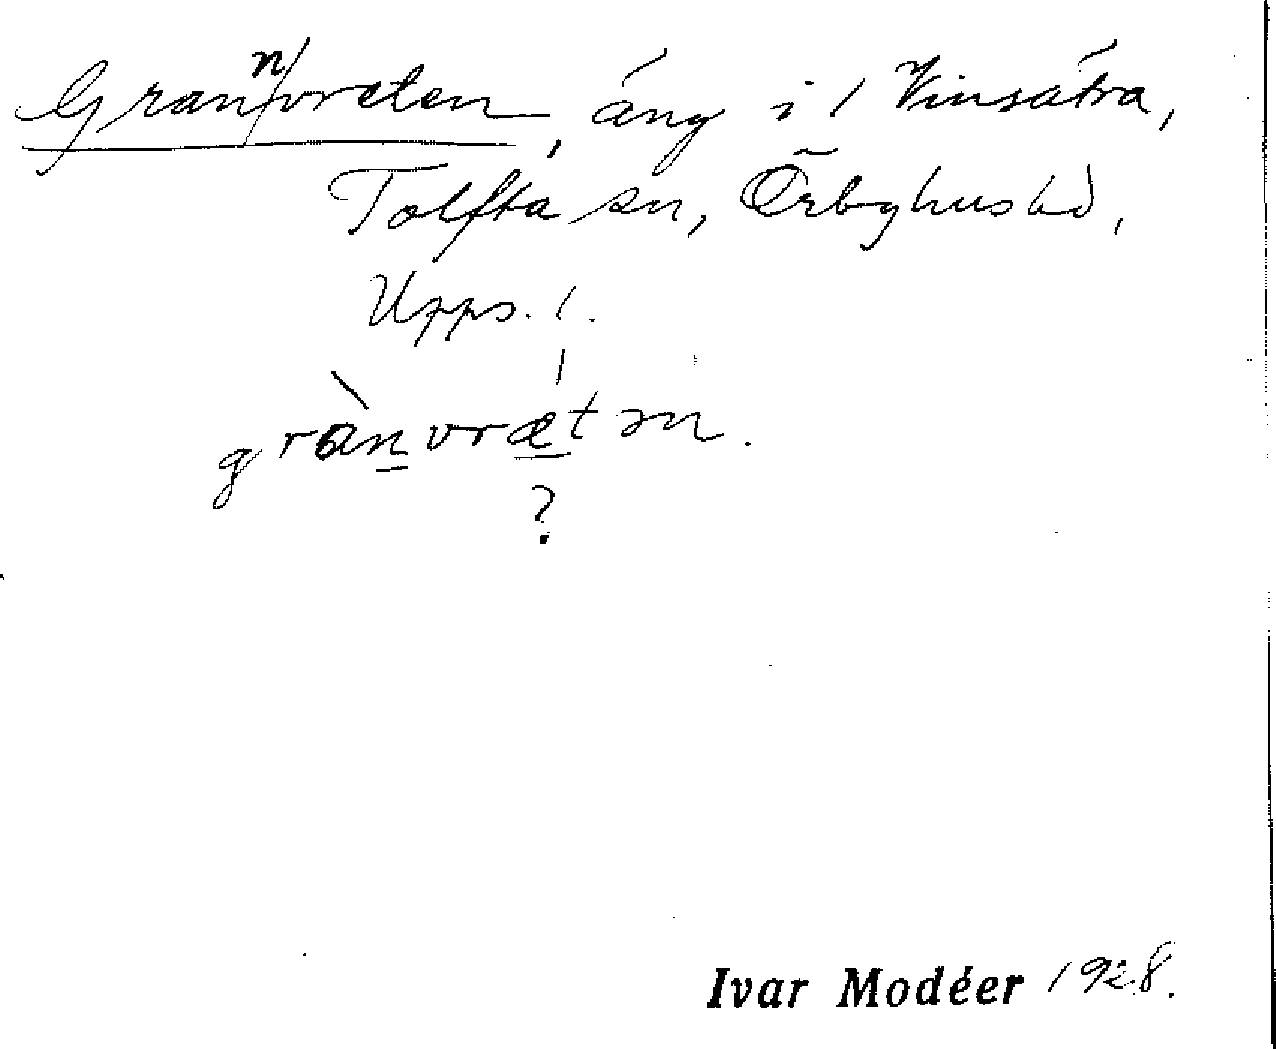 Grannvreten, äng i / Vinsätra,
Tolfta sn, Örbyhus hd,
Upps. l.
grànvrætən.
?
Ivar Modéer 1928.